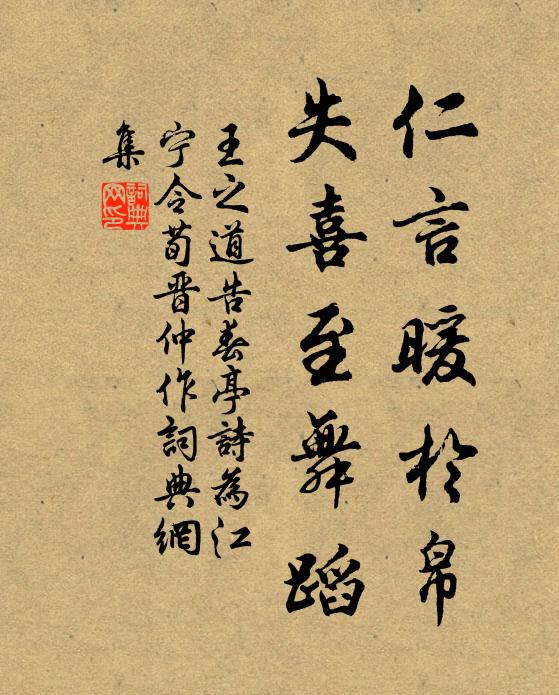 仁言暖於帛
失喜至舞蹈
王之道告春亭詩為江
宁令荀晋仲作詞典網
集
詞典
网印